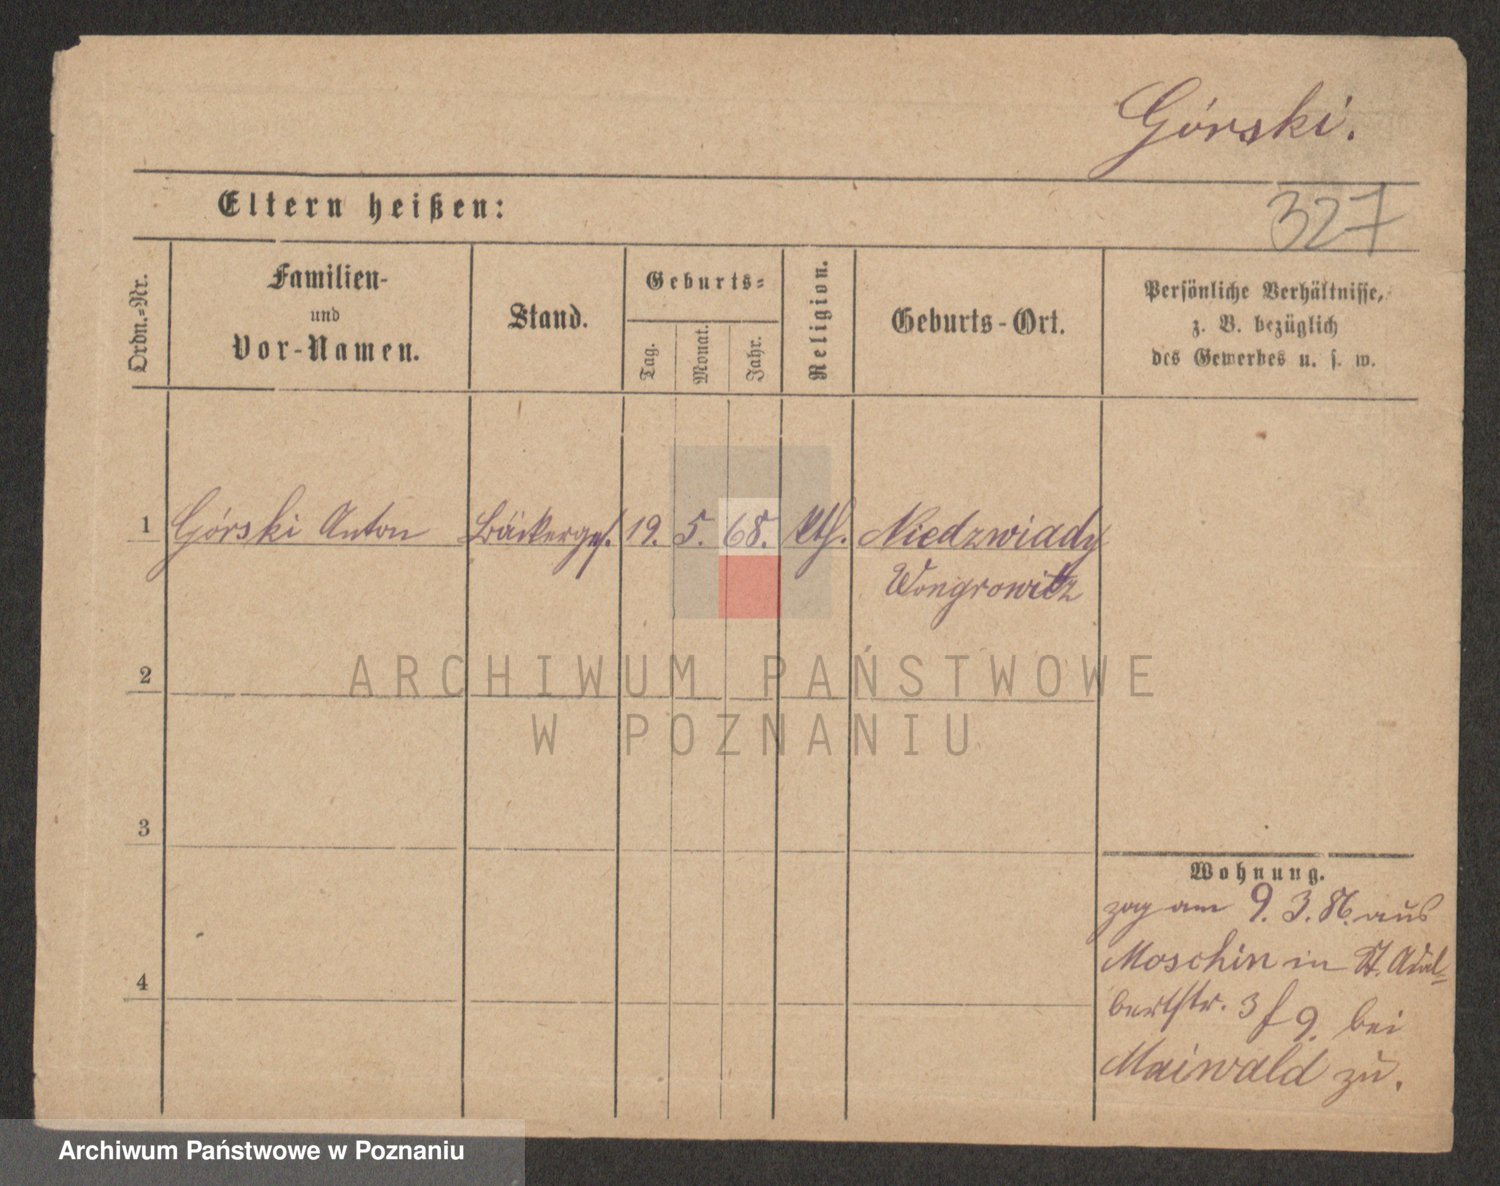 Górski.
Eltern heißen:
327
Ordn.-Nr.
Familien-
und
Vor-Namen.
Stand.
Geburts-
Tag.
Monat.
Jahr.
Religion.
Geburts-Ort.
Persönliche Verhältnisse,
z. B. bezüglich
des Gewerbes u. s. w.
1 Górski Anton Bäckerges. 19. 5. 68. kth. Niedzwiady
Wongrowitz
2
ARCHIWUM PAŃSTWOWE
W POZNANIU
3
Wohnung.
zog am 9. 3. 86. aus
Moschin in St. Adal-
bertstr. 3 f 9. bei
Maiwald zu.
4
Archiwum Państwowe w Poznaniu